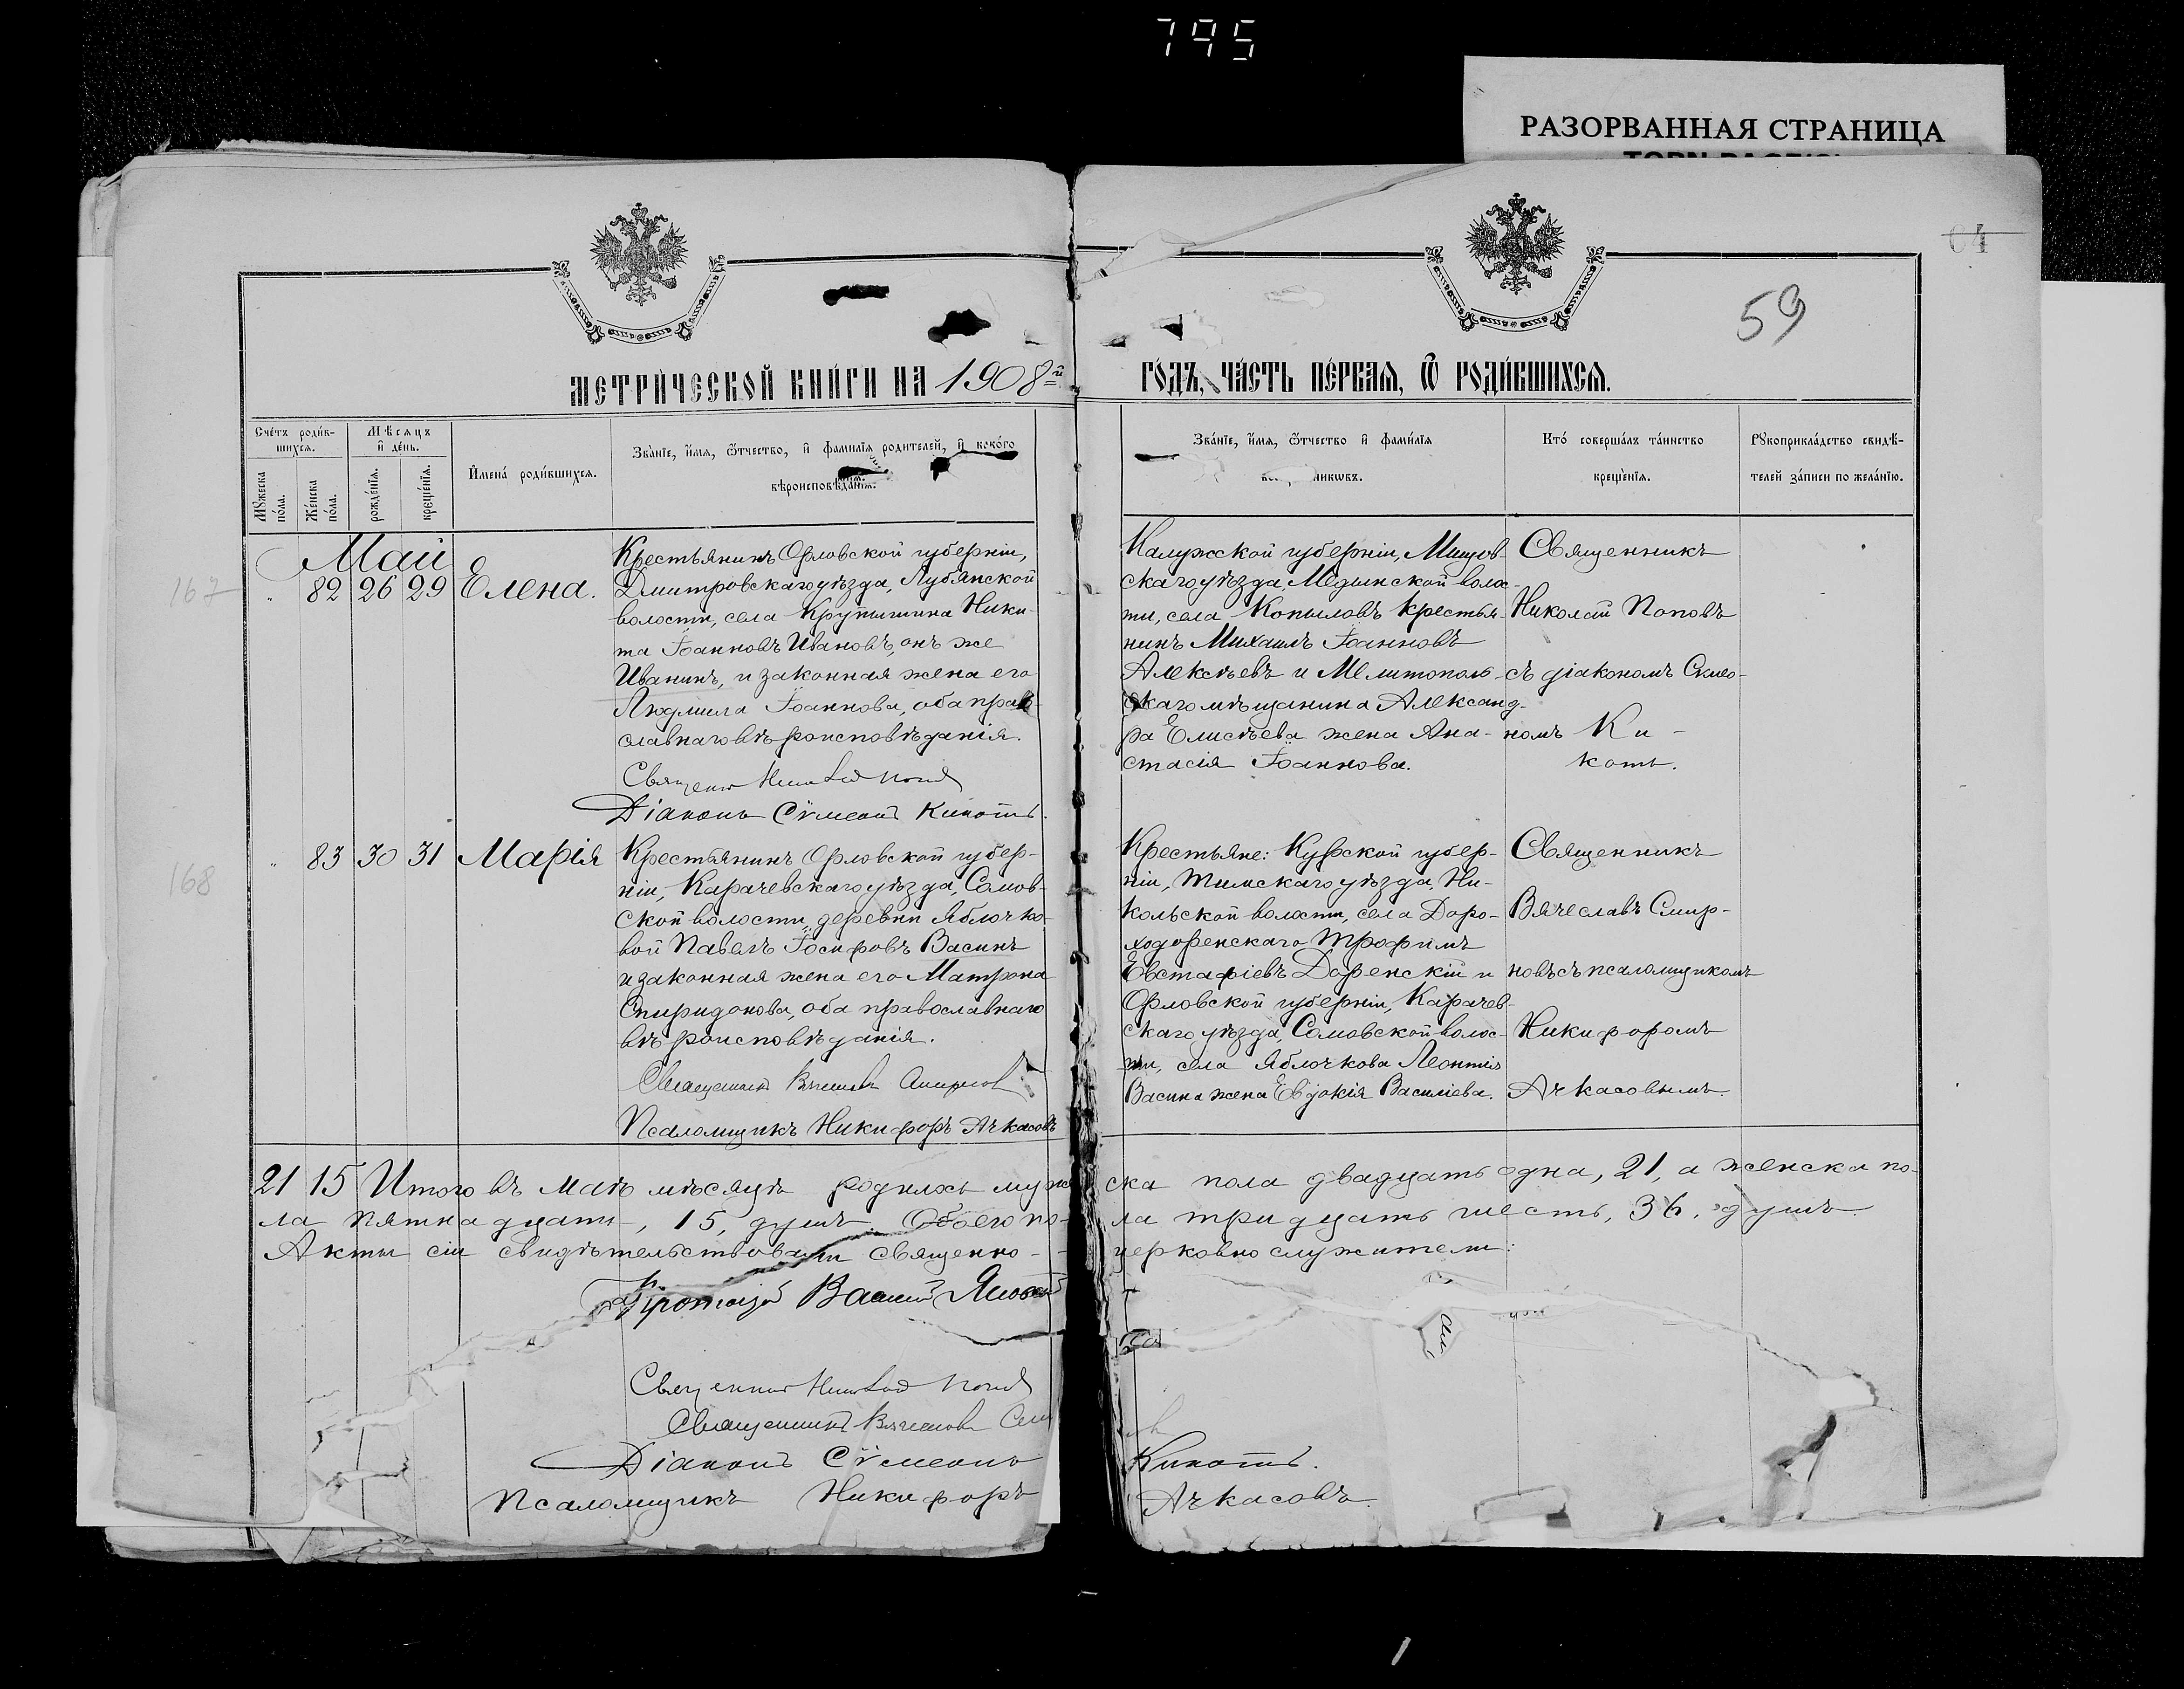 795
РАЗОРВАННАЯ СТРАНИЦА
04
59
МЕТРИЧЕСКОЙ КНИГИ НА 1908й
ГОДЪ, ЧАСТЬ ПЕРВАЯ, Ѿ РОДИВШИХСЯ.
Счетъ родив-
шихся.
Мужеска пола.
Женска пола.
Мѣсяцъ
и день.
рожденія.
крещенія.
Имена родившихся.
Званіе, имя, ѿтчество, и фамилія родителей, и кокого
вѣроисповѣданія.
Званіе, имя, ѿтчество и фамилія
Кто совершалъ таинство
крещенія.
Рукоприкладство свидѣ-
телей записи по желанію.
Май
167
82 26 29 Елена.
Крестьянинъ Орловской губерніи,
Дмитровскаго уѣзда, Лубянской
волости, села Крупышина Ники-
та Іоанновъ Ивановъ, онъ же
Иванинъ, и законная жена его
Людмила Іоаннова, оба право-
славнаго вѣроисповѣданія.
Діаконъ Сѵмеонъ Кикоть.
Калужской губерніи, Мещов-
скаго уѣзда, Медынской волос-
ти, села Копыловъ крестья-
нинъ Михаилъ Іоанновъ
Алексѣевъ и Мелитополь-
скаго мѣщанина Александ-
ра Елисѣева жена Ана-
стасія Іоаннова.
Священникъ
Николай Поповъ
съ діакономъ Симео-
номъ Ки-
коть.
168
83 30 31 Марія
Крестьянинъ Орловской губер-
ніи, Карачевскаго уѣзда, Самов-
ской волости, деревни Яблочко-
вой Павелъ Іосифовъ Васинъ
и законная жена его Матрона
Спиридонова, оба православнаго
вѣроисповѣданія.
Священникъ Вячеславъ Смирновъ
Псаломщикъ Никифоръ Ачкасовъ
Крестьяне: Курской губер-
ніи, Тимскаго уѣзда, Ни-
кольской волости, села Доро-
ходоренскаго Трофимъ
Евстафіевъ Доренскій и
Орловской губерніи, Карачев-
скаго уѣзда, Самовской волос-
ти, села Яблочкова Леонтія
Васина жена Евдокія Василіева.
Священникъ
Вячеславъ Смир-
новъ съ псаломщикомъ
Никифоромъ
Ачкасовымъ.
21 15 Итого въ Маѣ мѣсяцѣ родилось муже
ска пола двадцать одна, 21, а женска по-
ла пятнадцать, 15, душъ. Обоего по-
ла тридцать шесть, 36, душъ.
Акты сіи свидѣтельствовали священно-
церковно служители:
Протоіерей Василій
Священникъ Николай Поповъ
Священникъ Вячеславъ
Діаконъ Сѵмеонъ Кикоть.
Псаломщикъ Никифоръ Ачкасовъ.